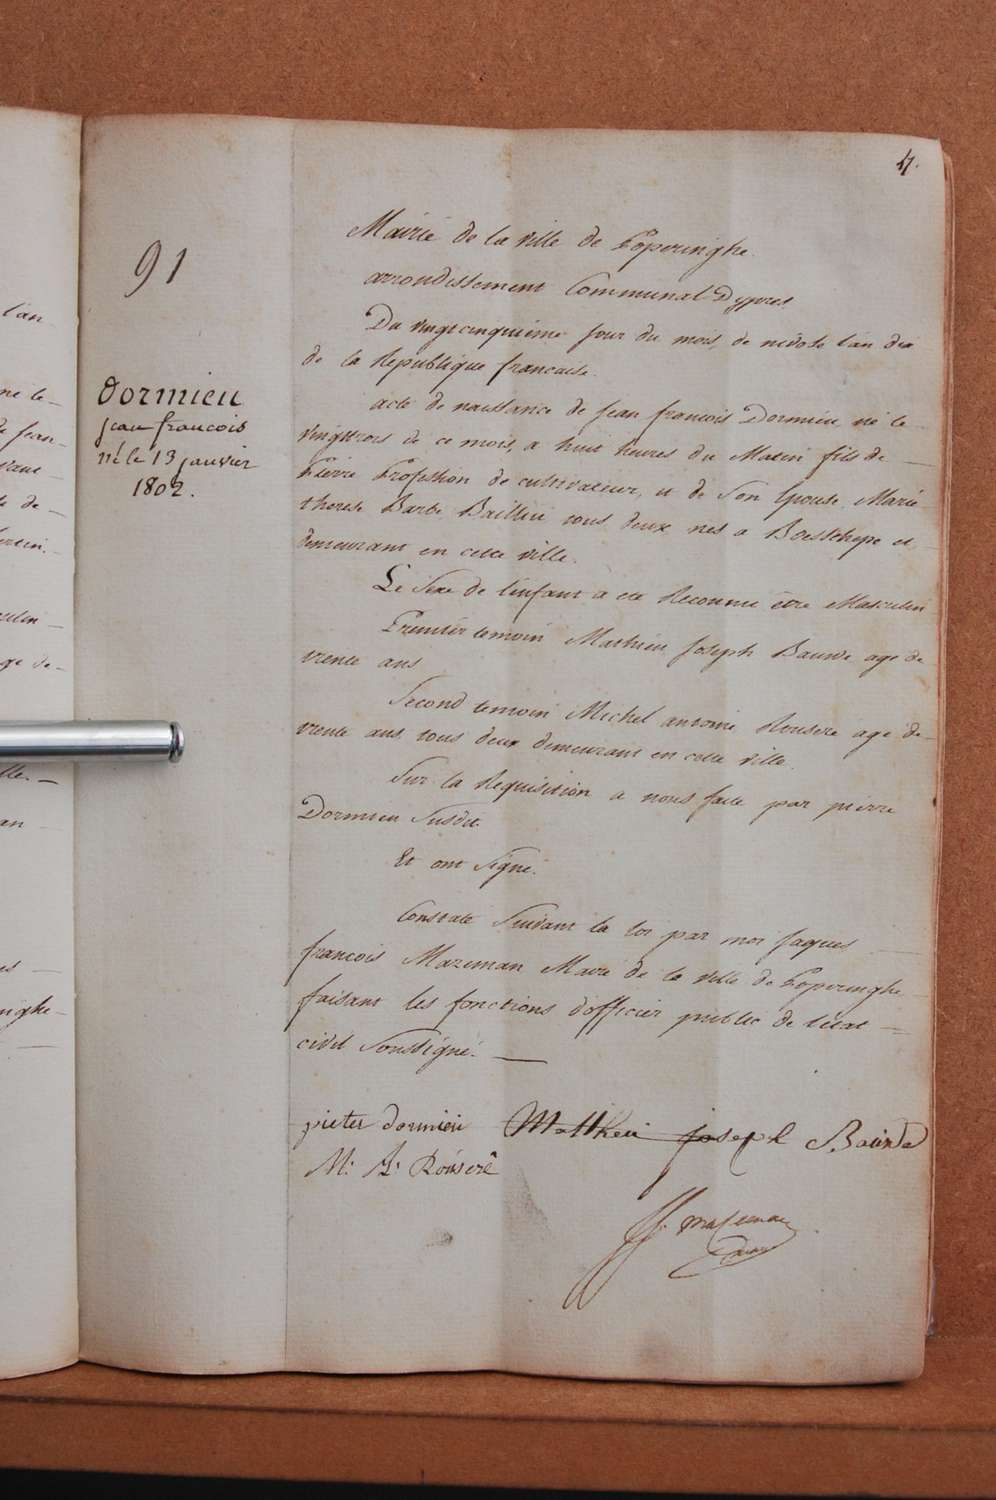 47.
91
Dormieu
jean francois
né le 13 janvier
1802.
Mairie de la ville de Poperinghe.
arrondissement Communal D'ypres.
Du vingtcinquieme jour du mois, de nivose l'an dix
de la Republique francaise.
acte de naissance de jean francois Dormieu né le
vingttrois de ce mois, a huit heures du Matin fils de
Pierre Profession de cultivateur, et de Son Epouse Marie
therese Barbe Baillieu tous deux nés a Boesschepe et
demeurant en cette ville.
Le Sexe de l'enfant a été Reconnu être Masculin
Premier temoin Mathieu Joseph Baurde agé de
trente ans
Second temoin Michel antoine Rousere agé de
trente ans tous deux demeurant en cette ville.
Sur la Requisition a nous faite par pierre
Dormieu Susdit.
Et ont Signé.
Constaté Suivant la loi par moi jaques
francois Mazeman Maire de la ville de Poperinghe
faisant les fonctions d'officier public de l'etat
civil Soussigné.
pieter dormieu Matthieu joseph Baurde
M: A: Rouseré
JF. Mazeman